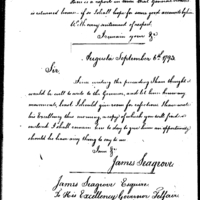 there is a report in town that General
is returned home, if so I shall hope for some good accounts before
With every sentiment of respect
I remain your &c
Augusta September 6th 1793
Sir,
Since writing the preceding I have thought
well to write to the Governor, and let him know my
movements, least I should give room for reflections. I have wrote
his excellency this morning a copy of which you will find
inclosed. I shall remain here to day to give him an opportunity
should he have any thing to say to me
I am &c
James Seagrove
James Seagrove Esquire
To His Excellency Governor Telfair